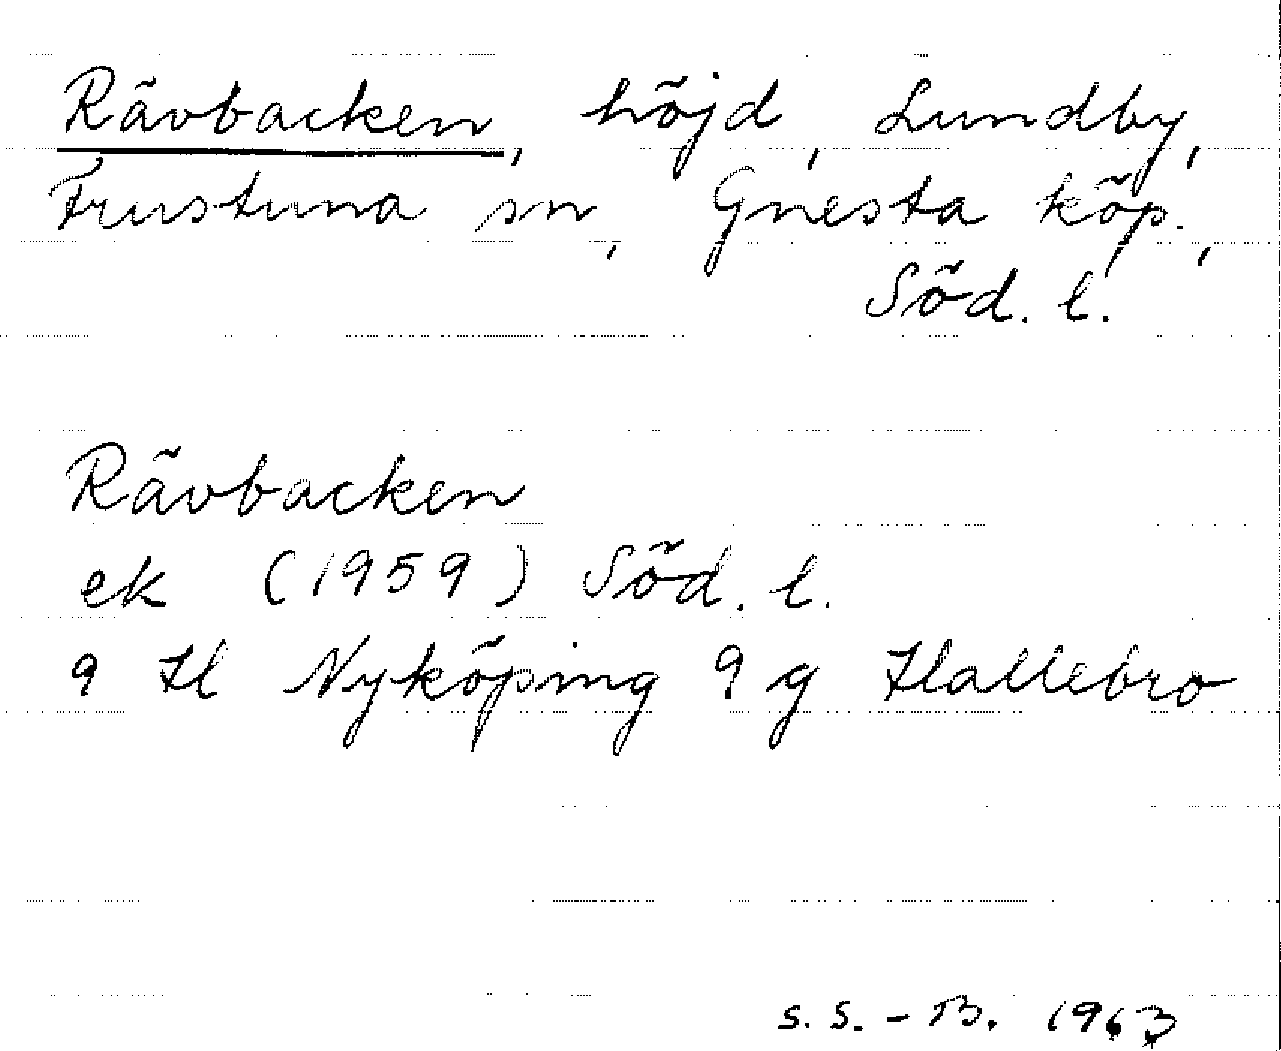 Rävbacken, höjd, Lundby,
Frustuna sn, Gnesta köp.,
Söd. l.
Rävbacken
ek (1959) Söd. l.
9 H Nyköping 9 g Hallebro
S.S.-B. 1963